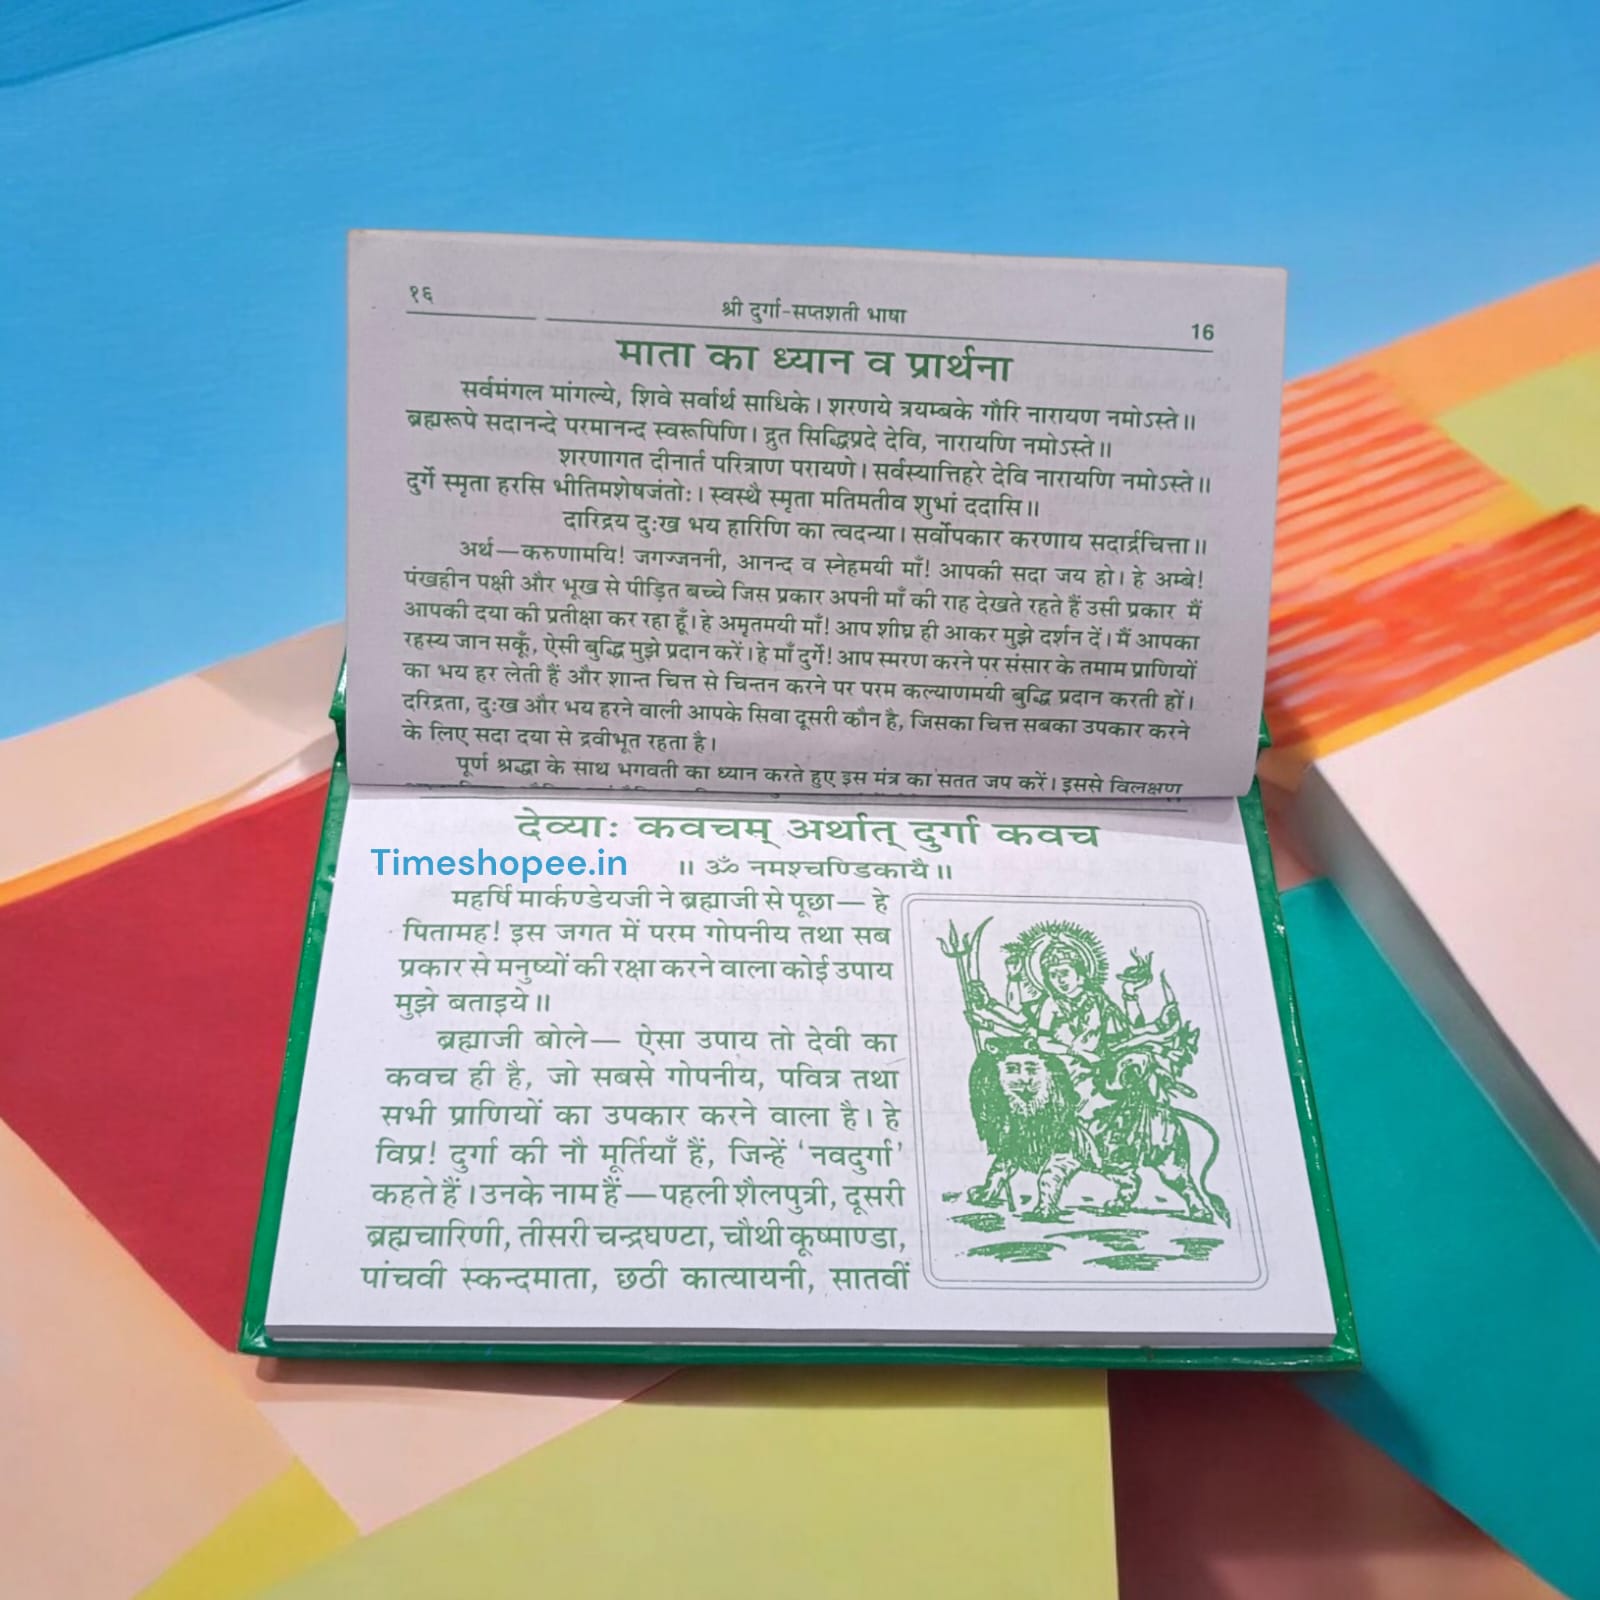 १६
श्री दुर्गा-सप्तशती भाषा
16
माता का ध्यान व प्रार्थना
सर्वमंगल मांगल्ये, शिवे सर्वार्थ साधिके। शरणये त्रयम्बके गौरि नारायण नमोऽस्ते॥
ब्रह्मरूपे सदानन्दे परमानन्द स्वरूपिणि। द्रुत सिद्धिप्रदे देवि, नारायणि नमोऽस्ते॥
शरणागत दीनार्त परित्राण परायणे। सर्वस्यात्तिहरे देवि नारायणि नमोऽस्ते॥
दुर्गे स्मृता हरसि भीतिमशेषजंतोः। स्वस्थै स्मृता मतिमतीव शुभां ददासि॥
दारिद्रय दुःख भय हारिणि का त्वदन्या। सर्वोपकार करणाय सदार्द्रचित्ता॥
अर्थ—करुणामयि! जगज्जननी, आनन्द व स्नेहमयी माँ! आपकी सदा जय हो। हे अम्बे!
पंखहीन पक्षी और भूख से पीड़ित बच्चे जिस प्रकार अपनी माँ की राह देखते रहते हैं उसी प्रकार मैं
आपकी दया की प्रतीक्षा कर रहा हूँ। हे अमृतमयी माँ! आप शीघ्र ही आकर मुझे दर्शन दें। मैं आपका
रहस्य जान सकूँ, ऐसी बुद्धि मुझे प्रदान करें। हे माँ दुर्गे! आप स्मरण करने पर संसार के तमाम प्राणियों
का भय हर लेती हैं और शान्त चित्त से चिन्तन करने पर परम कल्याणमयी बुद्धि प्रदान करती हों।
दरिद्रता, दुःख और भय हरने वाली आपके सिवा दूसरी कौन है, जिसका चित्त सबका उपकार करने
के लिए सदा दया से द्रवीभूत रहता है।
पूर्ण श्रद्धा के साथ भगवती का ध्यान करते हुए इस मंत्र का सतत जप करें। इससे विलक्षण
देव्याः कवचम् अर्थात् दुर्गा कवच
Timeshopee.in
॥ ॐ नमश्चण्डिकायै॥
महर्षि मार्कण्डेयजी ने ब्रह्माजी से पूछा— हे
पितामह! इस जगत में परम गोपनीय तथा सब
प्रकार से मनुष्यों की रक्षा करने वाला कोई उपाय
मुझे बताइये॥
ब्रह्माजी बोले— ऐसा उपाय तो देवी का
कवच ही है, जो सबसे गोपनीय, पवित्र तथा
सभी प्राणियों का उपकार करने वाला है। हे
विप्र! दुर्गा की नौ मूर्तियाँ हैं, जिन्हें ‘नवदुर्गा’
कहते हैं। उनके नाम हैं—पहली शैलपुत्री, दूसरी
ब्रह्मचारिणी, तीसरी चन्द्रघण्टा, चौथी कूष्माण्डा,
पांचवी स्कन्दमाता, छठी कात्यायनी, सातवीं